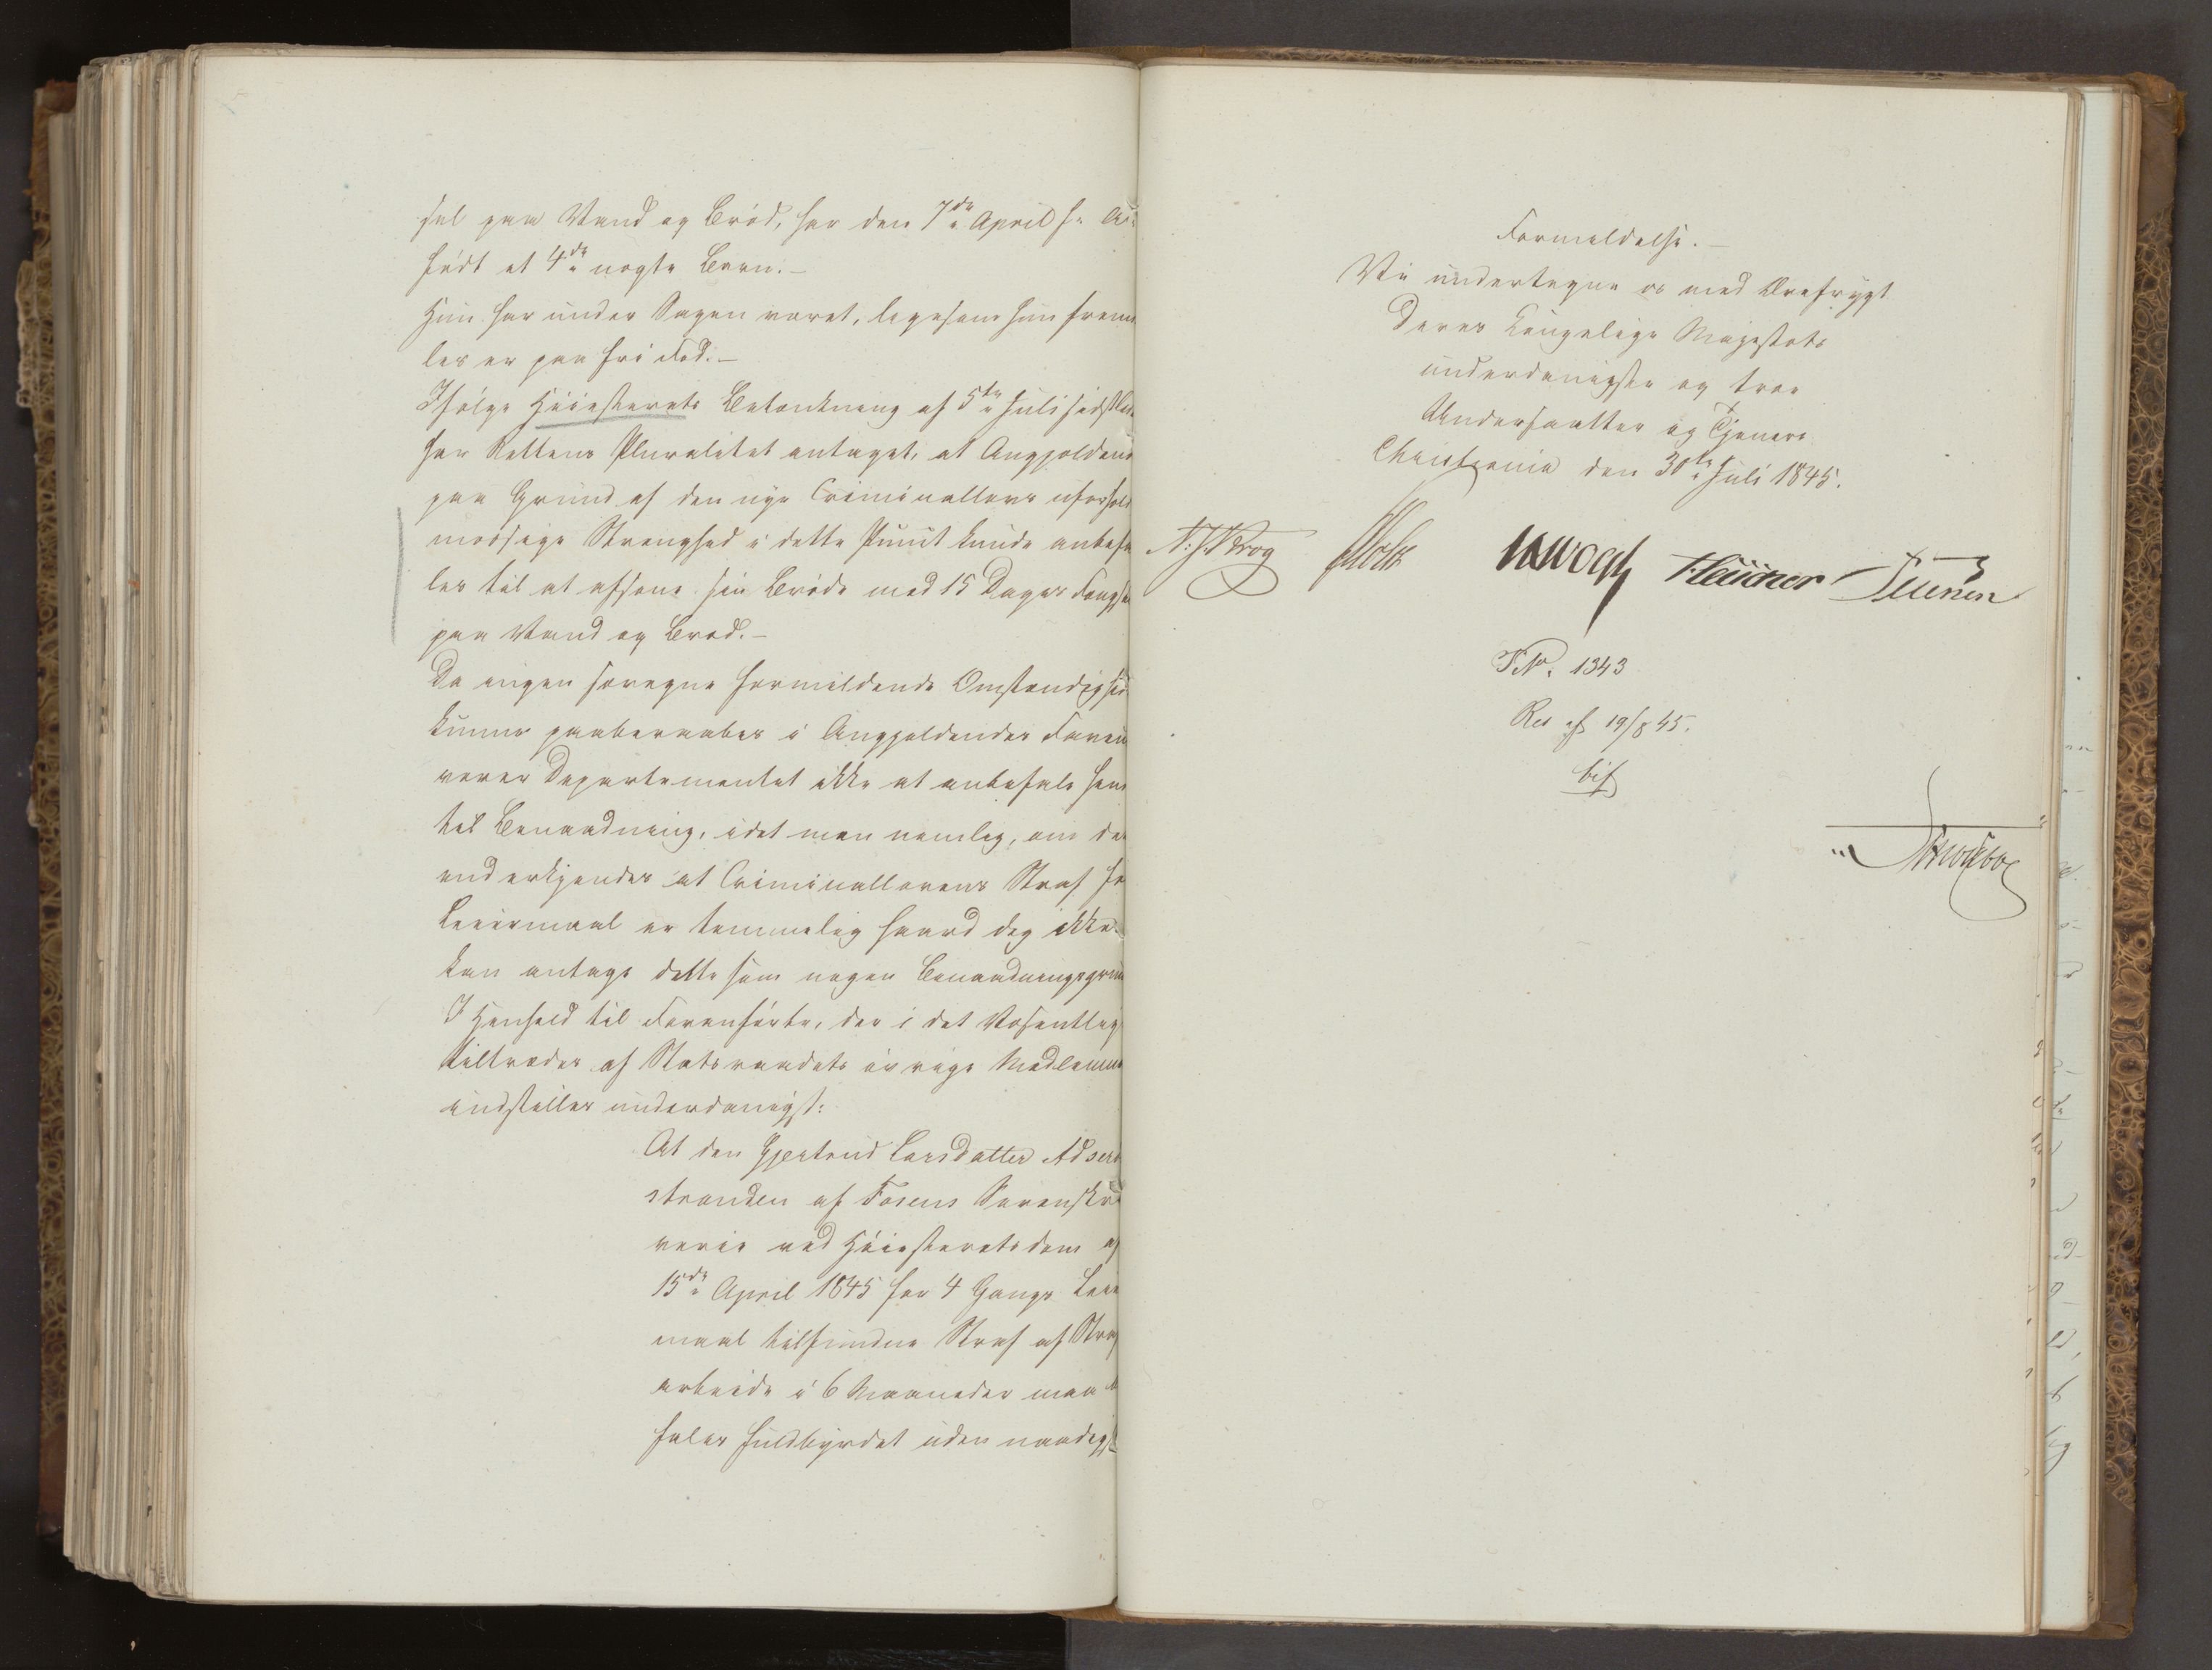 sel paa Vand og Bröd, har den 7de April f. A.
född et 4de uægte Barn.—
Hun har under Sagen været, ligesom hun frem-
les er paa fri Fod.—
Ifølge Höiesterets Betænkning af 5te Juli sidstled.
har Rettens Pluralitet antaget, at Angjældende
paa Grund af den nye Criminallovs uforhold
mæssige Strenghed i dette Punct kunde anbefa
les til at afsone sin Bröde med 15 Dages Fængsel
paa Vand og Bröd.—
Da ingen særegne formildende Omstændighed
kunne paaberaabes i Angjældendes Faveur
vover Departementet ikke at anbefale hende
til Benaadning, idet man nemlig, om det
end erkjendes at Criminallovens Straf for
Leiermaal er temmelig haard dog ikke
kan antage dette som nogen Benaadningsgrund
I Henhold til Foranførte, der i det Væsentlige
tiltrædes af Statsraadets övrige Medlemmer
indstilles underdanigst:
At den Gjertrud Larsdatter Adser
stranden af Fosens Sorenskri
verie ved Höiesteretsdom af
15de April 1845 for 4 Gangs Leier
maal tilfundne Straf af Straf
arbeide i 6 Maaneder maa be
fales fuldbyrdet uden naadigst
Formildelse.—
Vi undertegne os med Ærefrygt
Deres Kongelige Majestæts
underdanigste og troe
Undersaatter og Tjenere
Christiania den 30te Juli 1845.
N. J. Krog Holst Vogh
J. No. 1343
Res af 19/8 45.
bif